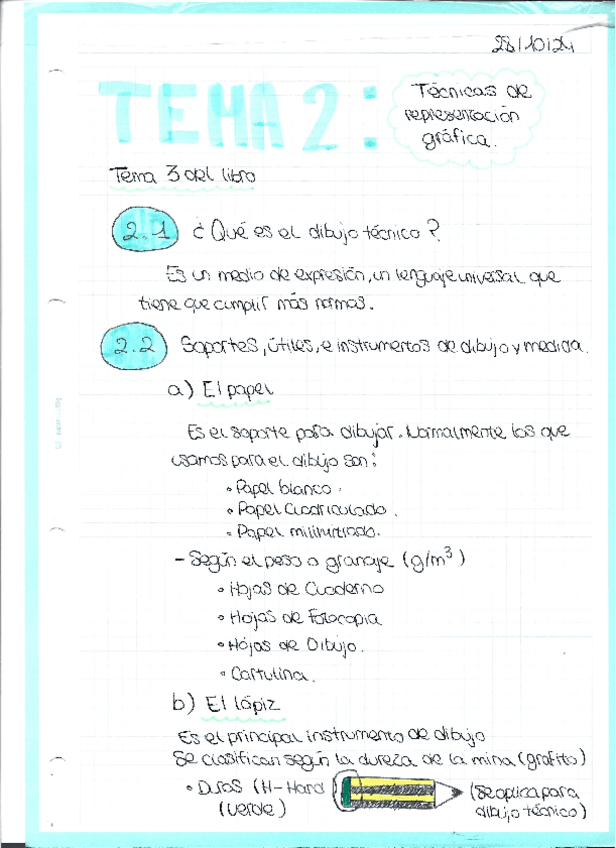 28/10/24
TEMA 2:
Técnicas de
representación
gráfica.
Tema 3 del libro
2.1 ¿Qué es el dibujo técnico?
Es un medio de expresión, un lenguaje universal que
tiene que cumplir más normas.
2.2 Soportes, útiles, e instrumentos de dibujo y medida.
a) El papel
Es el soporte para dibujar. Normalmente los que
usamos para el dibijo son:
• Papel blanco.
• Papel cuadriculado.
• Papel milimitrado.
- Según el peso o gramaje (g/m³)
• Hojas de cuaderno
• Hojas de Fotocopia
• Hojas de Dibujo.
• Cartulina.
b) El lápiz
Es el principal instrumento de dibujo
Se clasifican según la dureza de la mina (grafito)
• Duros (H-Hard) (Se aplica para
(verde) dibujo técnico)